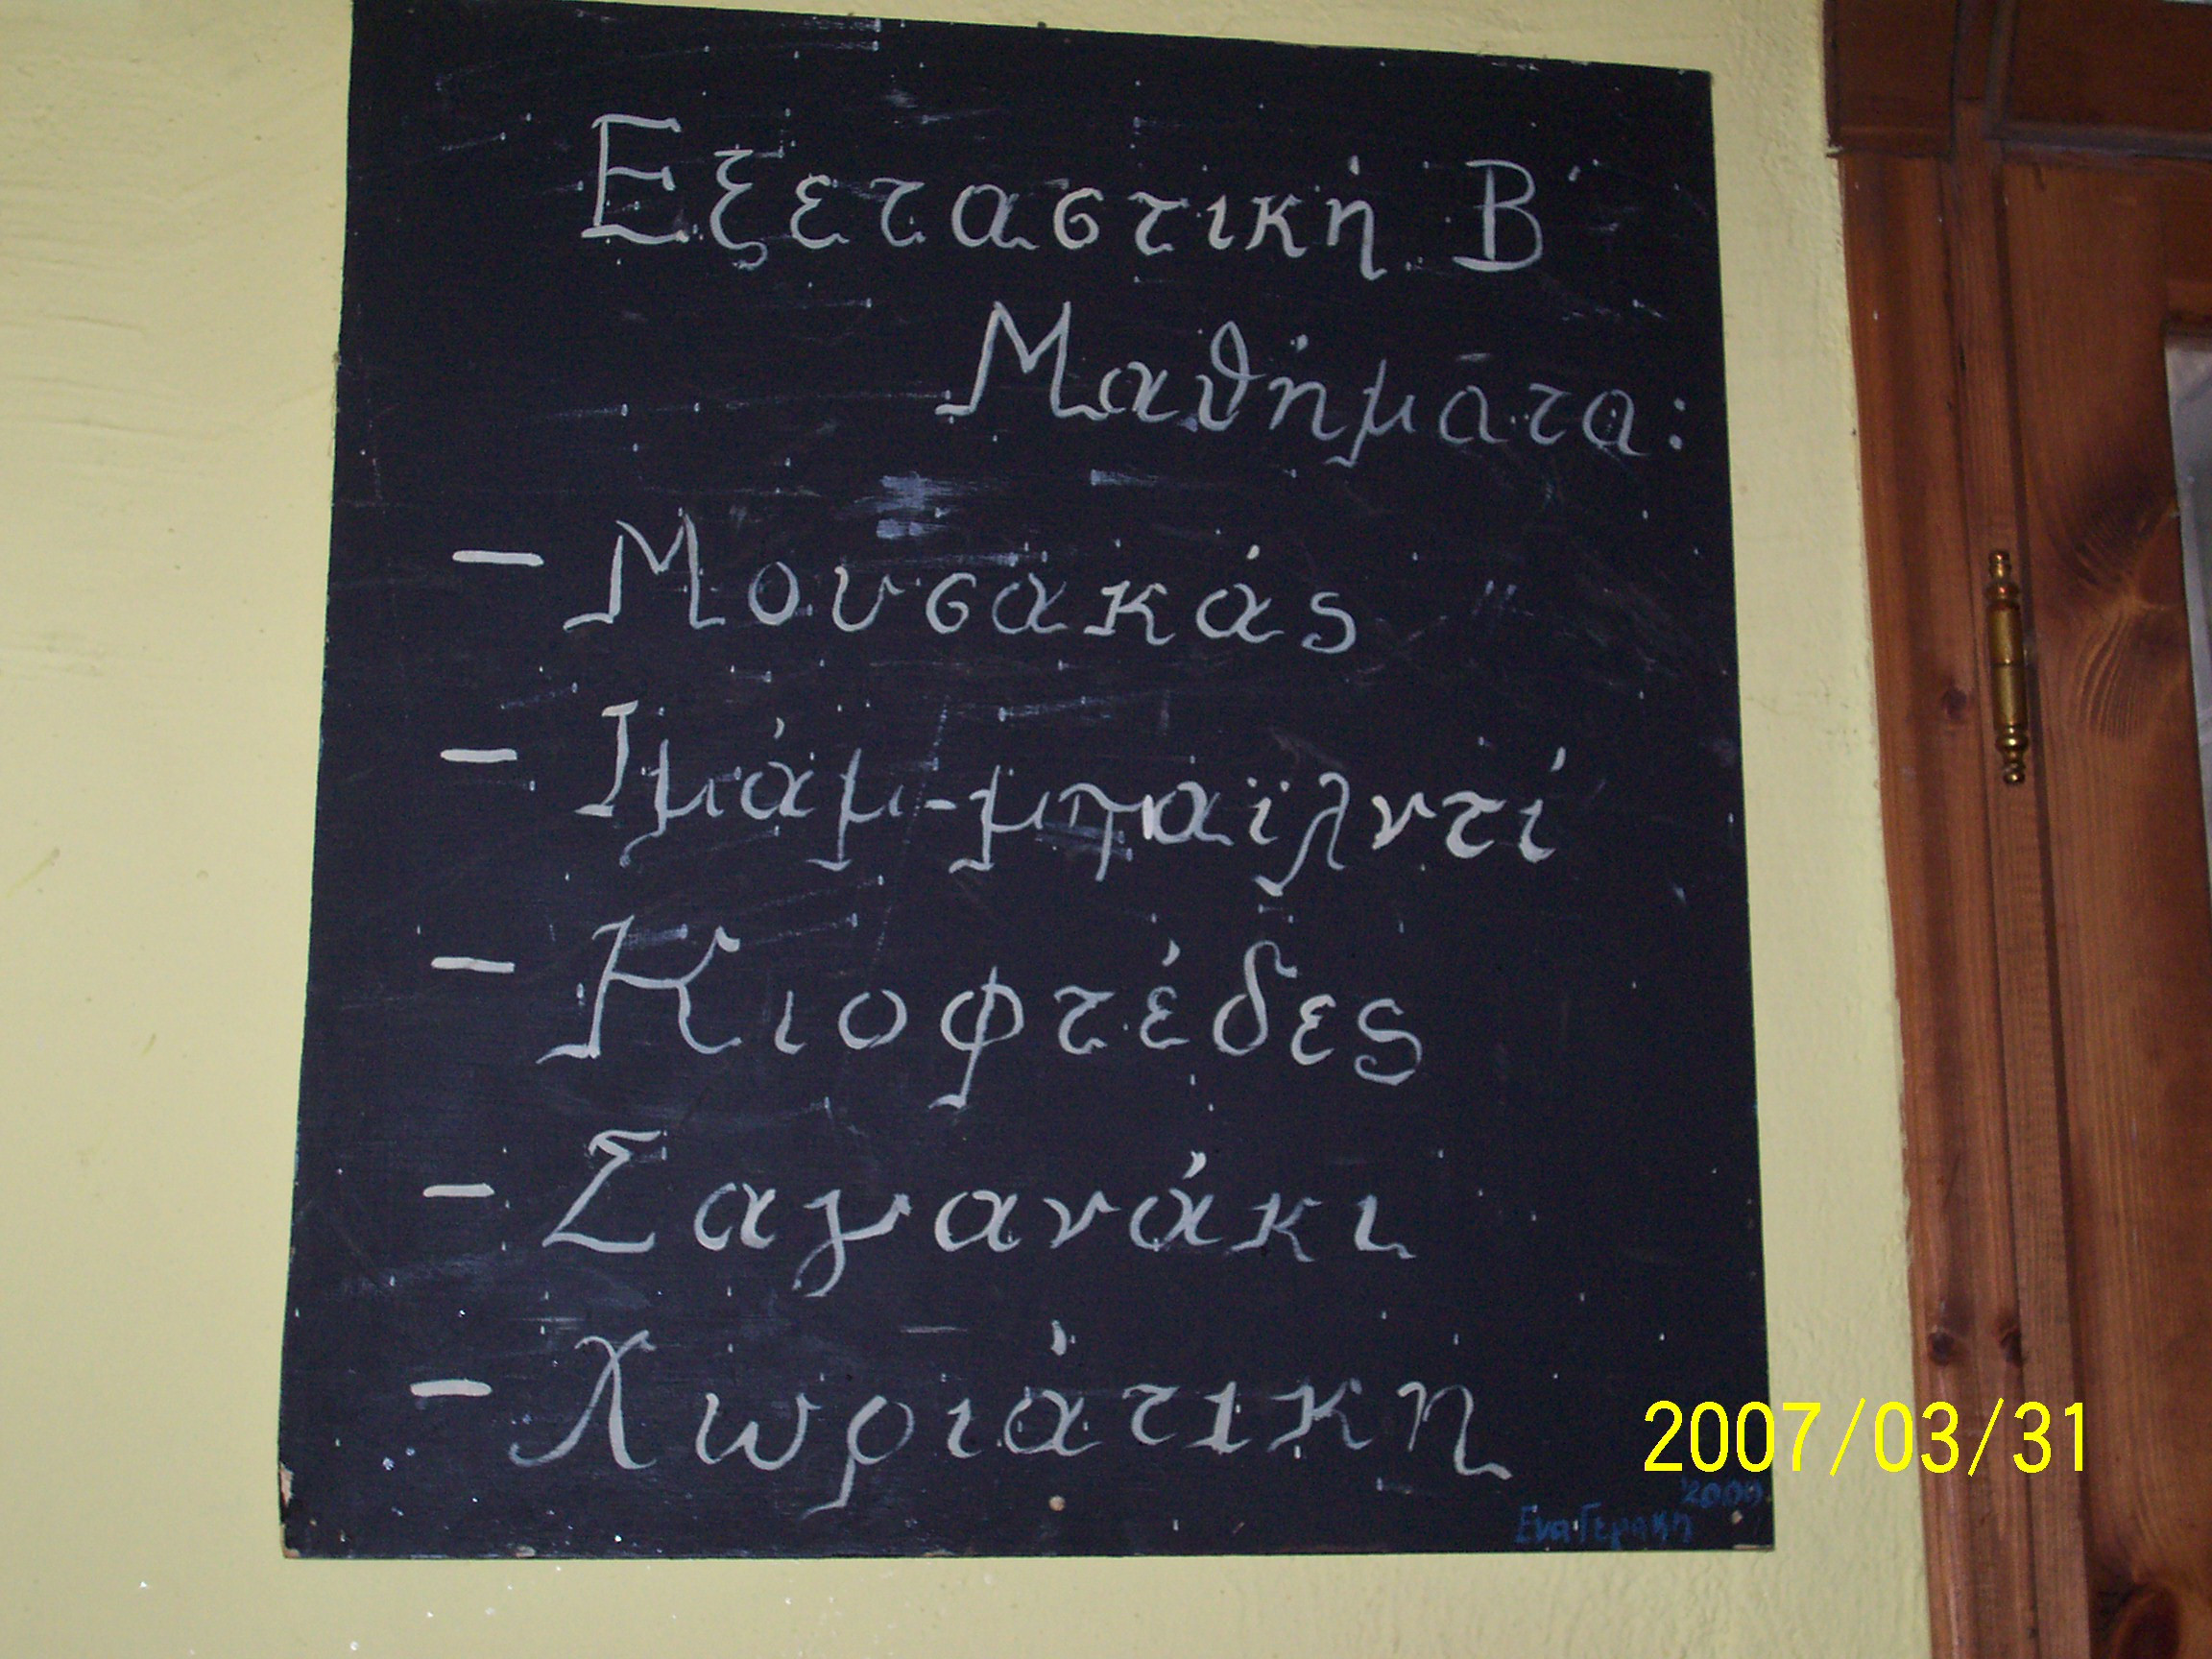 Εξεταστική Β΄
Μαθήματα:
- Μουσακάς
- Ιμάμ-μπαϊλντί
- Κιοφτέδες
- Σαγανάκι
- Χωριάτικη
2007/03/31
Ενα Γερακη